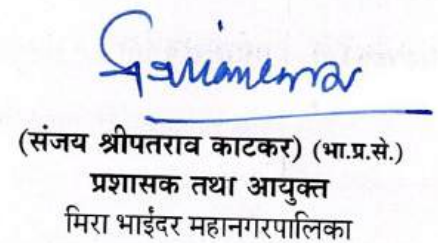 (संजय श्रीपतराव काटकर) (भा.प्र.से.)
प्रशासक तथा आयुक्त
मिरा भाईंदर महानगरपालिका